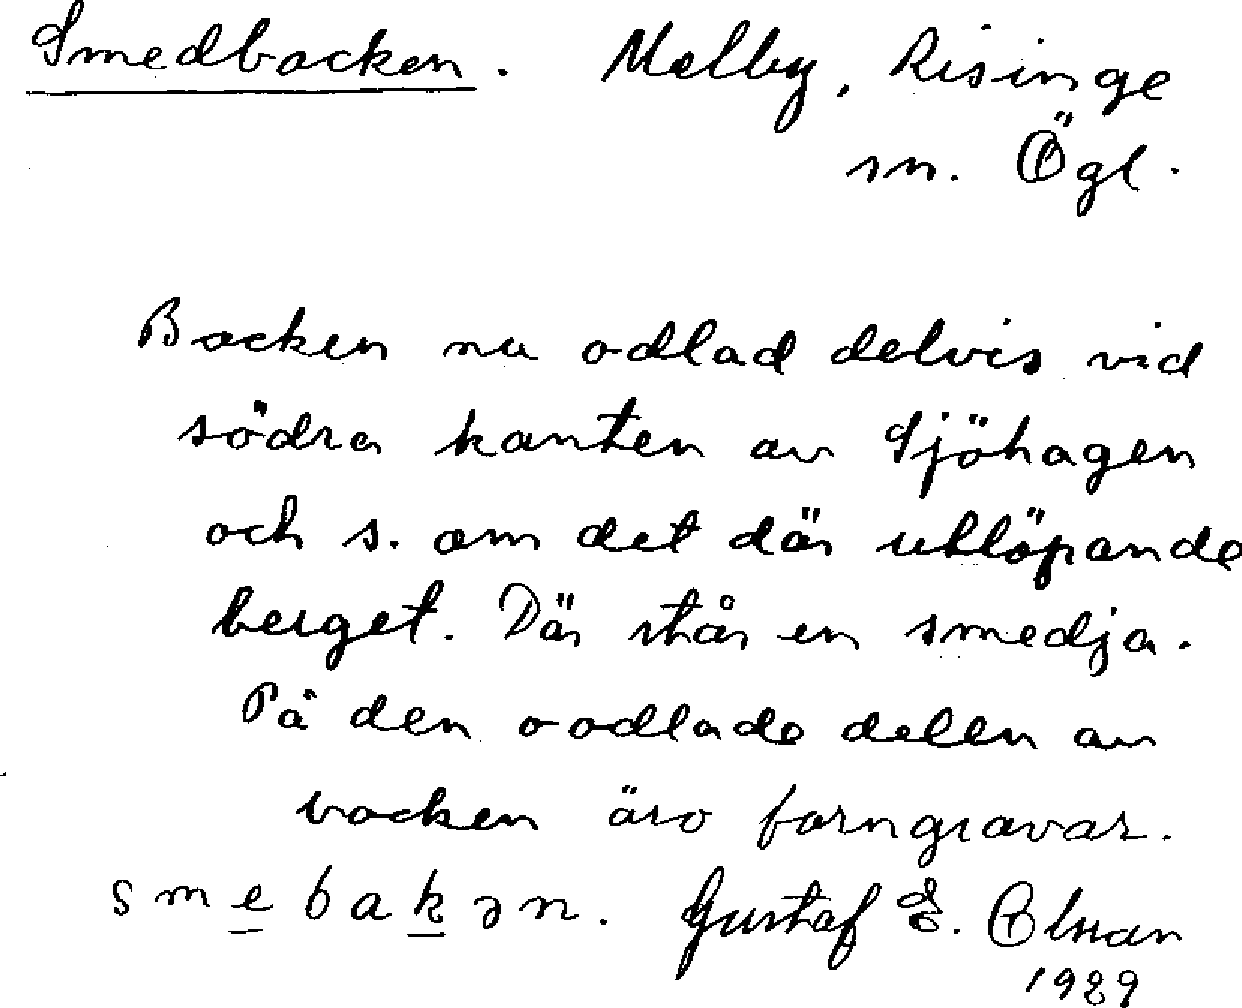 Smedbacken. Melby, Risinge
sn. Ögl.
Backen nu odlad delvis vid
södra kanten av Sjöhagen
och s. om det där utlöpande
berget. Där står en smedja.
På den oodlade delen av
backen äro forngravar.
smebakən. Gustaf E. Olsson
1929